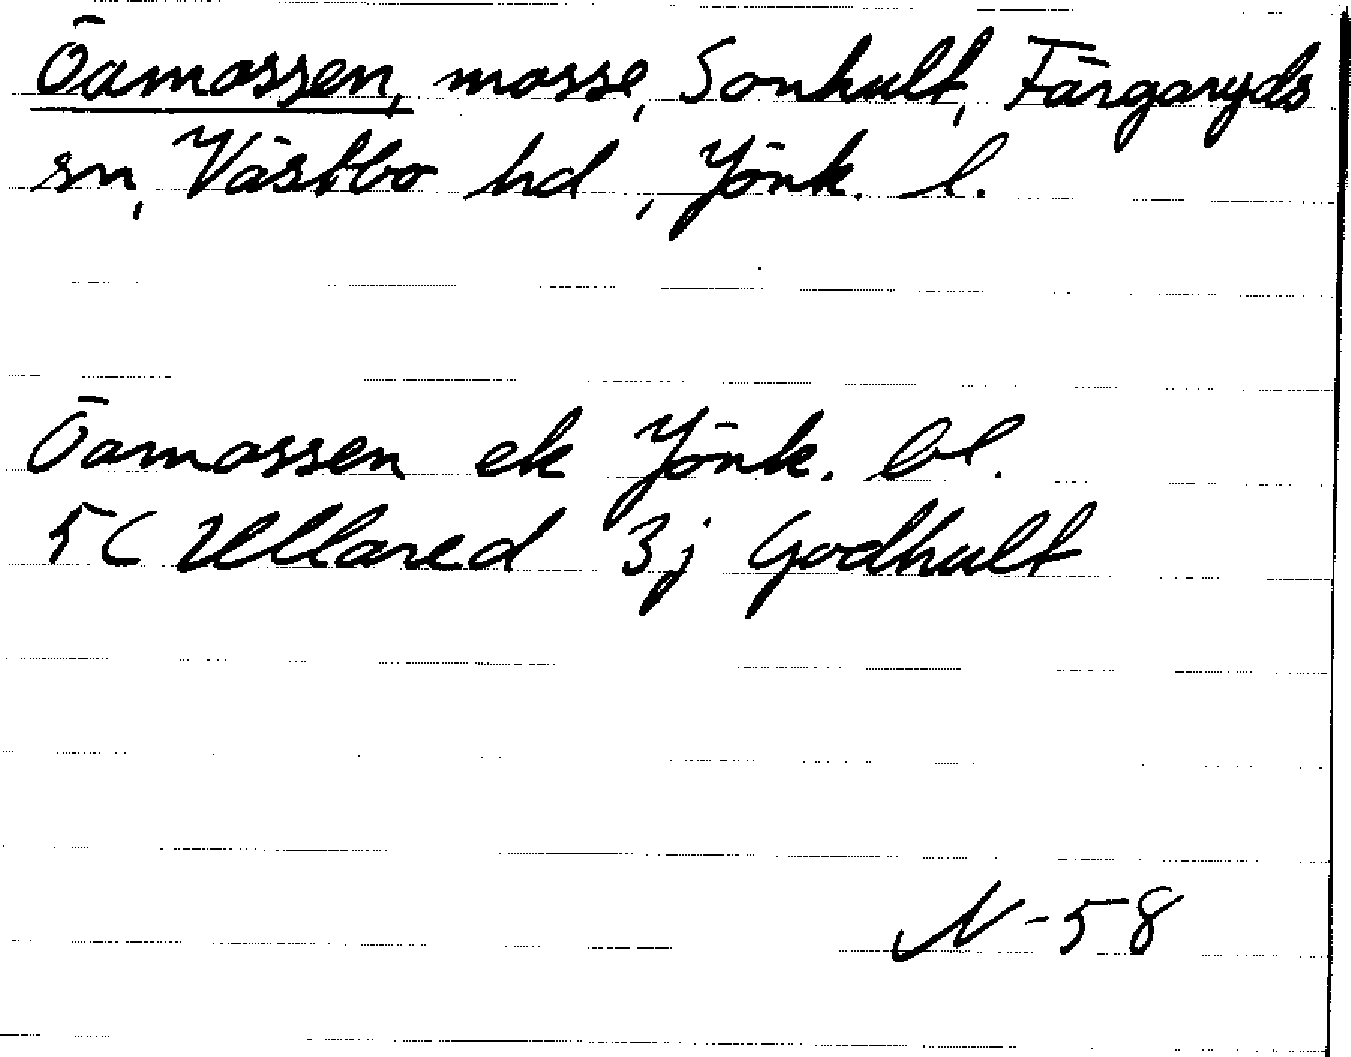 Öamossen, mosse, Sonhult, Färgaryds
sn, Västbo hd, Jönk. l.
Öamossen ek Jönk. bl.
5C Ullared 3j Godhult
N-58